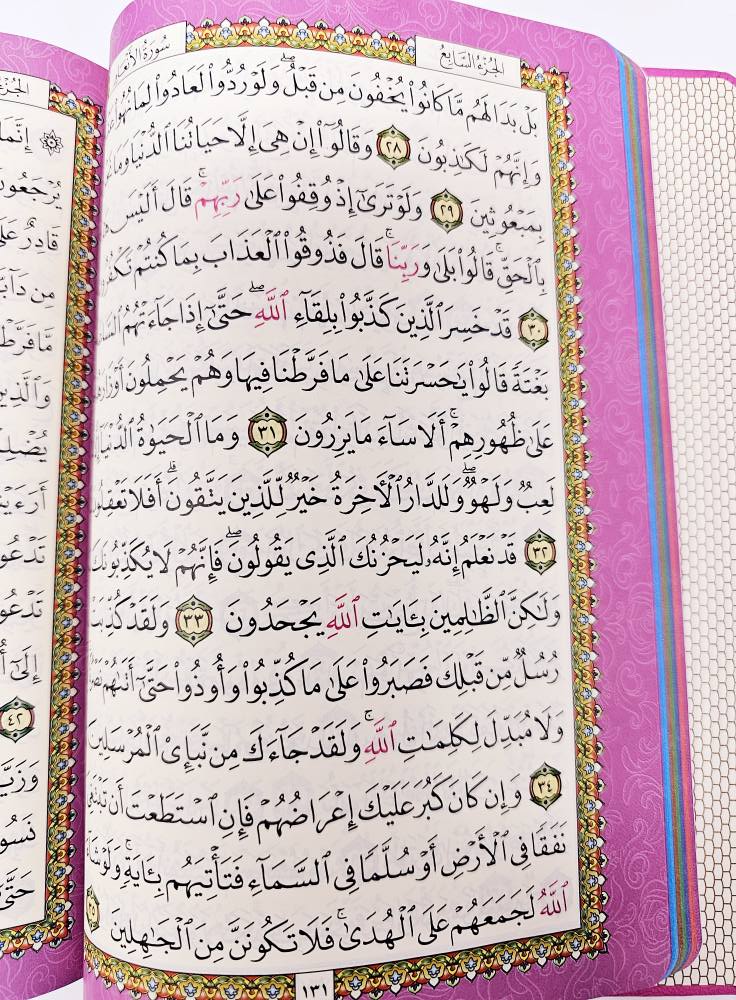 الجزء السابع
سورة الأنعام
بَلْ بَدَا لَهُم مَّا كَانُوا۟ يُخْفُونَ مِن قَبْلُ ۖ وَلَوْ رُدُّوا۟ لَعَادُوا۟ لِمَا نُهُوا۟
وَإِنَّهُمْ لَكَٰذِبُونَ ٢٨ وَقَالُوٓا۟ إِنْ هِىَ إِلَّا حَيَاتُنَا ٱلدُّنْيَا وَمَا
بِمَبْعُوثِينَ ٢٩ وَلَوْ تَرَىٰٓ إِذْ وُقِفُوا۟ عَلَىٰ رَبِّهِمْ ۚ قَالَ أَلَيْسَ
بِٱلْحَقِّ ۚ قَالُوا۟ بَلَىٰ وَرَبِّنَا ۚ قَالَ فَذُوقُوا۟ ٱلْعَذَابَ بِمَا كُنتُمْ
٣٠ قَدْ خَسِرَ ٱلَّذِينَ كَذَّبُوا۟ بِلِقَآءِ ٱللَّهِ ۖ حَتَّىٰٓ إِذَا جَآءَتْهُمُ
بَغْتَةً قَالُوا۟ يَٰحَسْرَتَنَا عَلَىٰ مَا فَرَّطْنَا فِيهَا وَهُمْ يَحْمِلُونَ
عَلَىٰ ظُهُورِهِمْ ۚ أَلَا سَآءَ مَا يَزِرُونَ ٣١ وَمَا ٱلْحَيَوٰةُ ٱلدُّنْيَآ
لَعِبٌ وَلَهْوٌ ۖ وَلَلدَّارُ ٱلْءَاخِرَةُ خَيْرٌ لِّلَّذِينَ يَتَّقُونَ ۗ أَفَلَا تَعْقِلُونَ
٣٢ قَدْ نَعْلَمُ إِنَّهُۥ لَيَحْزُنُكَ ٱلَّذِى يَقُولُونَ ۖ فَإِنَّهُمْ لَا يُكَذِّبُونَكَ
وَلَٰكِنَّ ٱلظَّٰلِمِينَ بِـَٔايَٰتِ ٱللَّهِ يَجْحَدُونَ ٣٣ وَلَقَدْ كُذِّبَتْ
رُسُلٌ مِّن قَبْلِكَ فَصَبَرُوا۟ عَلَىٰ مَا كُذِّبُوا۟ وَأُوذُوا۟ حَتَّىٰٓ أَتَىٰهُمْ
وَلَا مُبَدِّلَ لِكَلِمَٰتِ ٱللَّهِ ۚ وَلَقَدْ جَآءَكَ مِن نَّبَإِى۟ ٱلْمُرْسَلِينَ
٣٤ وَإِن كَانَ كَبُرَ عَلَيْكَ إِعْرَاضُهُمْ فَإِنِ ٱسْتَطَعْتَ أَن تَبْتَغِىَ
نَفَقًا فِى ٱلْأَرْضِ أَوْ سُلَّمًا فِى ٱلسَّمَآءِ فَتَأْتِيَهُم بِـَٔايَةٍ ۚ وَلَوْ شَآءَ
ٱللَّهُ لَجَمَعَهُمْ عَلَى ٱلْهُدَىٰ ۚ فَلَا تَكُونَنَّ مِنَ ٱلْجَٰهِلِينَ ٣٥
١٣١
إِنَّمَا
قَادِرٌ
مِن دَآبَّةٍ
وَٱلَّذِينَ
تَدْعُونَ
إِلَىٰٓ
٤٢